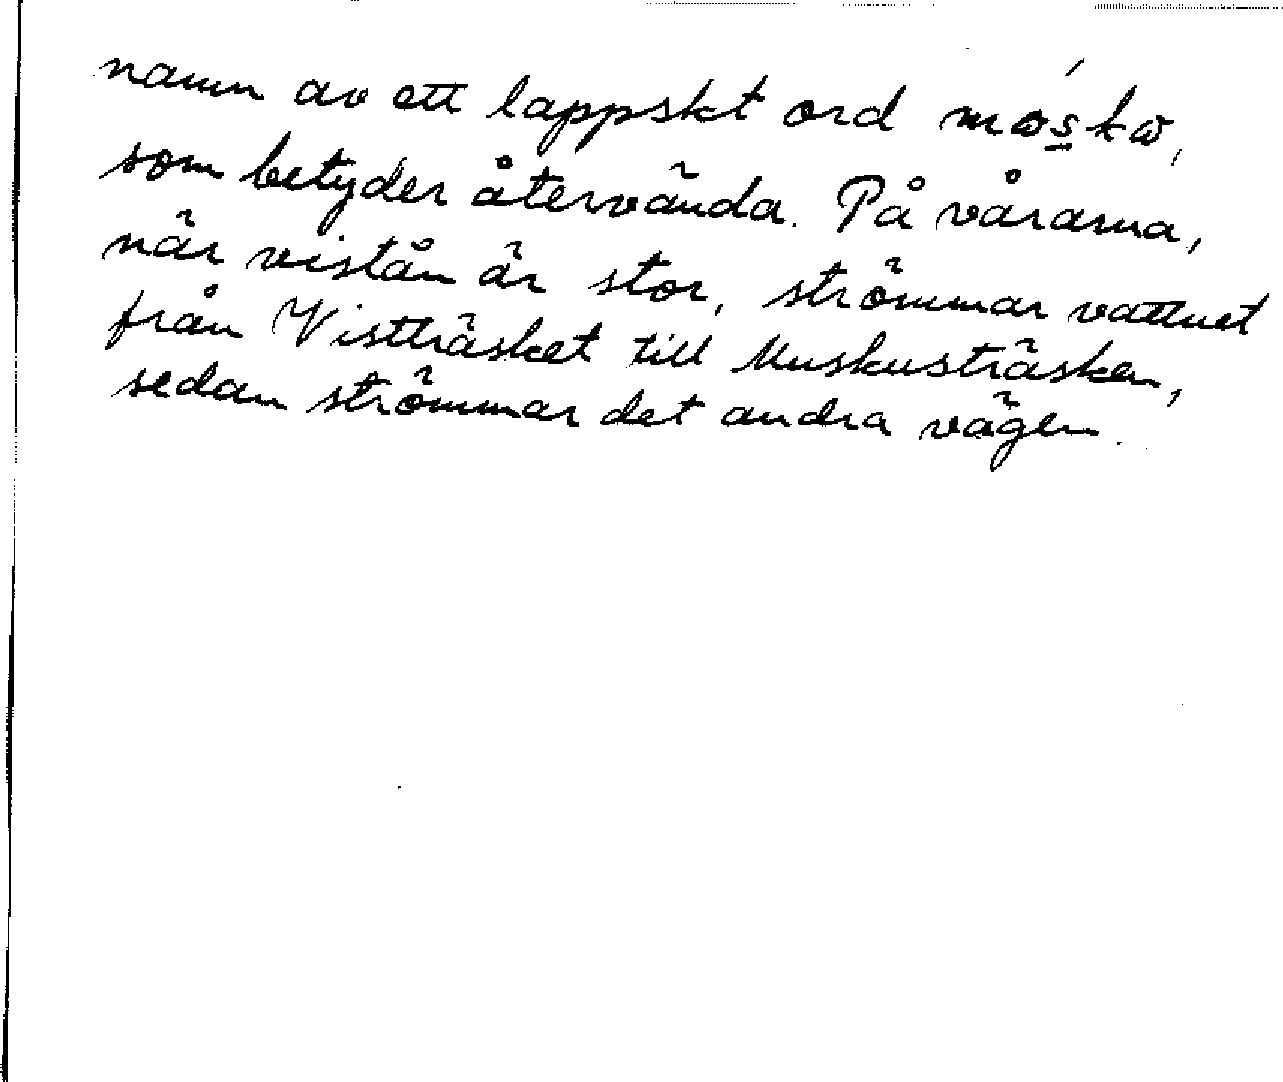 namn av ett lappskt ord
som betyder återvända. På vårarna,
när viståн är stor, strömmar vattnet
från Vistträsket till Muskusträsken,
sedan strömmar det andra vägen.